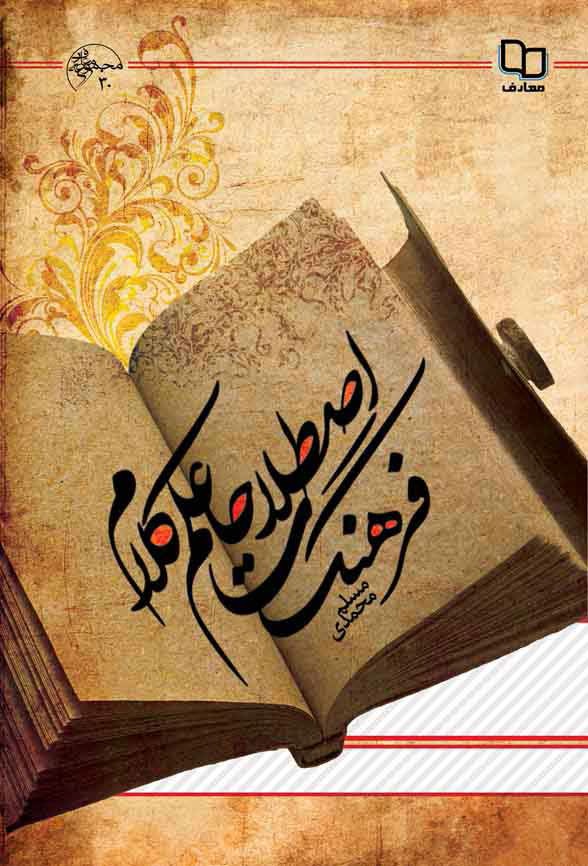 معارف
۳۰
فرهنگ
اصطلاحات
علم کلام
مسلم
محمدی